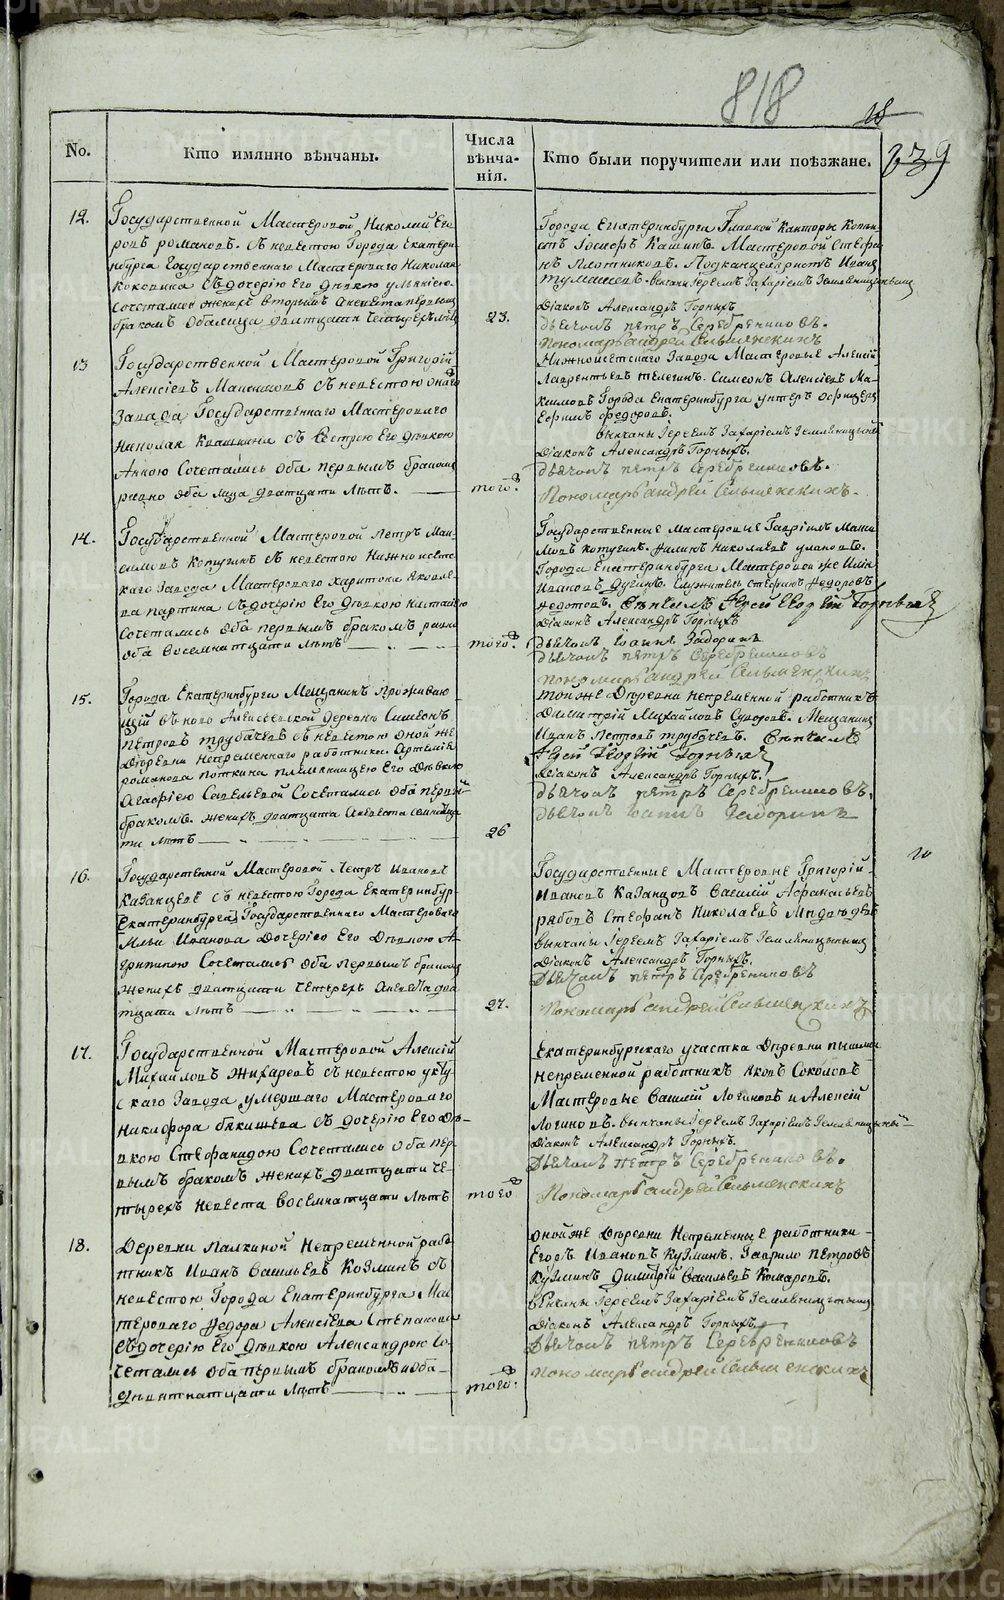 818
18
839
No.
Кто имянно вѣнчаны.
Числа вѣнча-
нія.
Кто были поручители или поѣзжане.
12. Государственной Мастеровой Николай Его
ровъ романовъ. Съ невестою Города Екатери
нбурга Государственнаго Мастероваго Николая
Съ дочерію Его дѣвкою
Сочетались женихъ вторымъ Аневеста первымъ
бракомъ Обалица дватцати четырехъ лѣтъ
23.
Города Екатеринбурга Главной Канторы Копеи
стъ Іосифъ Кашинъ. Мастеровой Стефа
нъ Плотниковъ. Подканцеляристъ Иванъ
Тумашевъ. Венчаны Іереемъ Захаріемъ Земляницынымъ
Діаконъ Александръ Горныхъ
дьячокъ петръ Серебренниковъ.
Пономарь андрей Сельменскихъ
13 Государственной Мастеровой Григорій
Алексіевъ съ невестою онаго
Завода Государственнаго Мастероваго
Николая Квашнина съ Сестрою Его дѣвкою
Анною Сочетались Оба первымъ бракомъ
равно оба лица дватцати Лѣтъ.
того.
Нижноисетскаго Завода Мастеровые Алексій
Лаврентьевъ телегинъ. Симеонъ Алексіевъ Ма-
ксимовъ Города Екатеринбурга унтеръ офицеръ
Ефимъ Федоровъ.
вѣнчаны Іереемъ Захаріемъ Земляницынымъ
Діаконъ Александръ Горныхъ.
дьячокъ петръ Серебренниковъ.
Пономарь андрей Сельменскихъ.
14. Государственной Мастеровой Петръ Мак
симовъ Копугинъ съ невестою Нижноисетс
каго Завода Мастероваго харитона Яковле
ва партина Съ дочерію Его дѣвкою настасьею
Сочетались оба первымъ бракомъ равно
оба восемнатцати Лѣтъ
того.
Государственные мастеровые Гавріилъ Макси
мовъ копугинъ. Николаевъ улановъ.
Города Екатеринбурга Мастеровой же Илія
Ивановъ Дугинъ. Служитель Стефанъ Федоровъ
Федотовъ. Вѣнчалъ Іерей Георгій Горныхъ
Діаконъ Александръ Горныхъ
дьячокъ Іоаннъ Задоринъ
дьячокъ петръ Серебренниковъ
пономарь андрей Сельменскихъ
15. Города Екатеринбурга Мещанинъ Проживаю
щій въ ново Алексѣевской деревнѣ Симеонъ
петровъ трубачевъ съ невестою оной же
Деревни непременнаго работника Артемія
романова поткина племянницею Его дѣвкою
Агафіею Савельевой Сочетались оба первымъ
бракомъ. женихъ дватцати Аневеста семнатца
ти лѣтъ
26
той же Деревни непременной работникъ
Димитрій Михайловъ Суворовъ. Мещанинъ
Иванъ Петровъ трубачевъ. Вѣнчалъ
Іерей Георгій Горныхъ
Діаконъ Александръ Горныхъ.
дьячокъ петръ Серебренниковъ.
дьячокъ Іоаннъ Задоринъ
20
16. Государственной Мастеровой Петръ Ивановъ
казанцовъ съ невестою Города Екатеринбур-
Екатеринбурга Государственнаго Мастероваго
Ильи Иванова Дочерію Его Дѣвкою А-
грипиною Сочетались Оба первымъ бракомъ
женихъ дватцати четырехъ Аневеста два
тцати лѣтъ
27.
Государственные Мастеровые Григорій
Ивановъ Казанцовъ Василій Афанасьевъ
рябовъ Стефанъ Николаевъ
вѣнчаны Іереемъ Захаріемъ Земляницынымъ
Діаконъ Александръ Горныхъ.
дьячокъ петръ Серебренниковъ
Пономарь андрей Сельменскихъ
17. Государственной Мастеровой Алексій
Михайловъ Жихаревъ съ невестою укту
скаго Завода умершаго Мастероваго
Никифора бякишева съ дочерію Его дѣ-
вкою Стефанидою Сочетались оба пер-
вымъ бракомъ женихъ дватцати че-
тырехъ невеста восемнатцати лѣтъ
того
Екатеринбургскаго участка Деревни пышмы
непременной работникъ Яковъ Соколовъ
Мастеровые Василій Логиновъ и Алексій
Логиновъ. вѣнчаны Іереемъ Захаріемъ Земляницынымъ
Діаконъ Александръ Горныхъ.
дьячокъ петръ Серебренниковъ.
Пономарь андрей Сельменскихъ
18. Деревни палкиной Непременной рабо
тникъ Иванъ Васильевъ Козминъ съ
невестою Города Екатеринбурга Мас
тероваго Федора Алексіева Степанова
съ дочерію Его дѣвкою Александрою Со
четались оба первымъ бракомъ и оба
девятнатцати Лѣтъ
того.
оной же Деревни Непременные работники
Егоръ Ивановъ Кузминъ. Гаврило Петровъ
Кузминъ Димитрій Васильевъ Комаровъ.
вѣнчаны Іереемъ Захаріемъ Земляницынымъ
Діаконъ Александръ Горныхъ.
дьячокъ петръ Серебренниковъ
пономарь андрей Сельменскихъ
METRIKI.GASO-URAL.RU